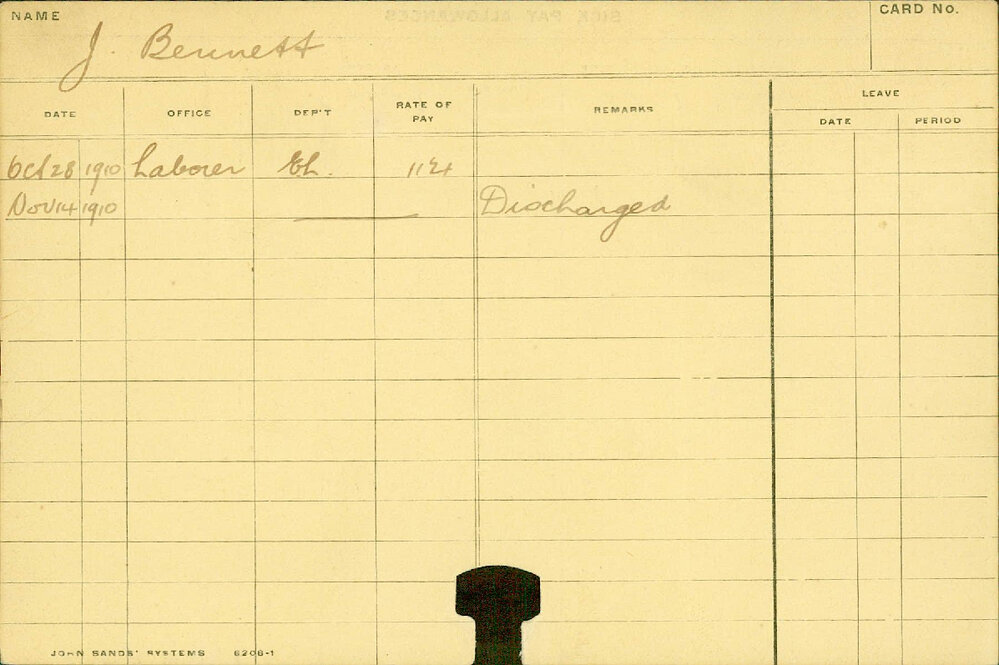 NAME
CARD No.
J. Bennett
DATE OFFICE DEP'T RATE OF PAY REMARKS LEAVE
DATE PERIOD
Oct 28 1910 Laborer
Nov 14 1910 Discharged
JOHN SANDS' SYSTEMS 6206-1